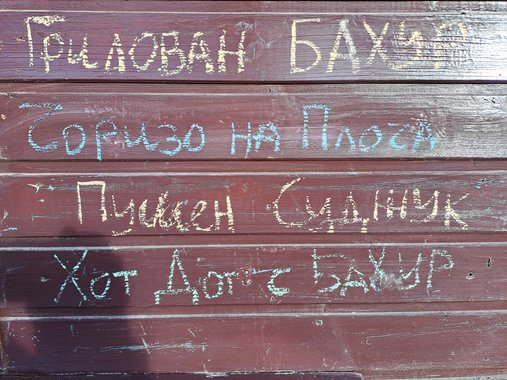 Грилован БАХУР
Чоризо на Плоча
Пушен Суджук
Хот Дог с БАХУР